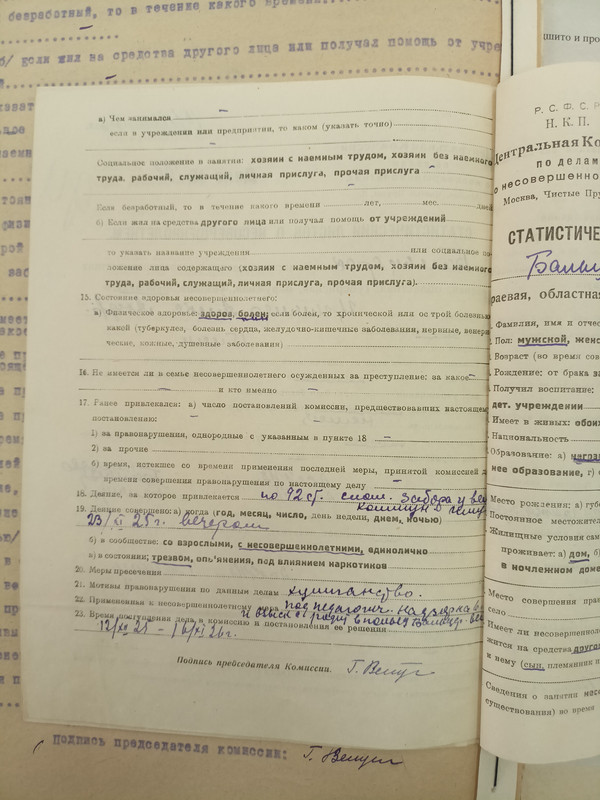 безработный, то в течение какого времени
б/ если жил на средства другого лица или получал помощь от учре
а) Чем занимался
если в учреждении или предприятии, то каком (указать точно)
Социальное положение в занятии: хозяин с наемным трудом, хозяин без наемного
труда, рабочий, служащий, личная прислуга, прочая прислуга
Если безработный, то в течение какого времени лет, мес. дней
б) Если жил на средства другого лица или получая помощь от учреждений
то указать название учреждения или социальное по-
ложение лица содержащего (хозяин с наемным трудом, хозяин без наемного
труда, рабочий, служащий, личная прислуга, прочая прислуга).
15. Состояние здоровья несовершеннолетнего:
а) Физическое здоровье: здоров, болен; если болен, то хронической или острой болезнью
какой (туберкулез, болезнь сердца, желудочно-кишечные заболевания, нервные, венери-
ческие, кожные, душевные заболевания)
16. Не имеется ли в семье несовершеннолетнего осужденных за преступление: за какое
и кто именно
17. Ранее привлекался: а) число постановлений комиссии, предшествовавших настоящему
постановлению:
1) за правонарушения, однородные с указанным в пункте 18
2) за прочие
б) время, истекшее со времени применения последней меры, принятой комиссией д
времени совершения правонарушения по настоящему делу
18. Деяние, за которое привлекается по 92 ст. слом. забора у
19. Деяние совершено: а) когда (год, месяц, число, день недели, днем, ночью)
23/XI 25 г. вечером
б) в сообществе: со взрослыми, с несовершеннолетними, единолично
в) в состоянии: трезвом, опьянения, под влиянием наркотиков
20. Меры пресечения
21. Мотивы правонарушения по данным дела: хулиганство.
22. Примененная к несовершеннолетнему мера под педагогич. надзор
23. Время поступления дела в комиссию и постановления ее решения
Подпись председателя Комиссии.
Подпись председателя комиссии:
шито и про
Р. С. Ф. С. Р.
Н. К. П.
Центральная Ко
по делам
о несовершенно
Москва, Чистые Пру
СТАТИСТИЧЕ
раевая, областная
Фамилия, имя и отчес
Пол: мужской, женс
Возраст (во время сов
Рождение: от брака за
Получил воспитание:
дет. учреждении
Имеет в живых: обоих
Национальность
Образование: а)
нее образование, г)
Место рождения: а) губе
Постоянное местожител
Жилищные условия сам
проживает: а) дом, б
в ночлежном доме
Место совершения прав
село
Имеет ли несовершенноле
жится на средства другог
к нему (сын, племянник
Сведения о занятии несо
существования) во время